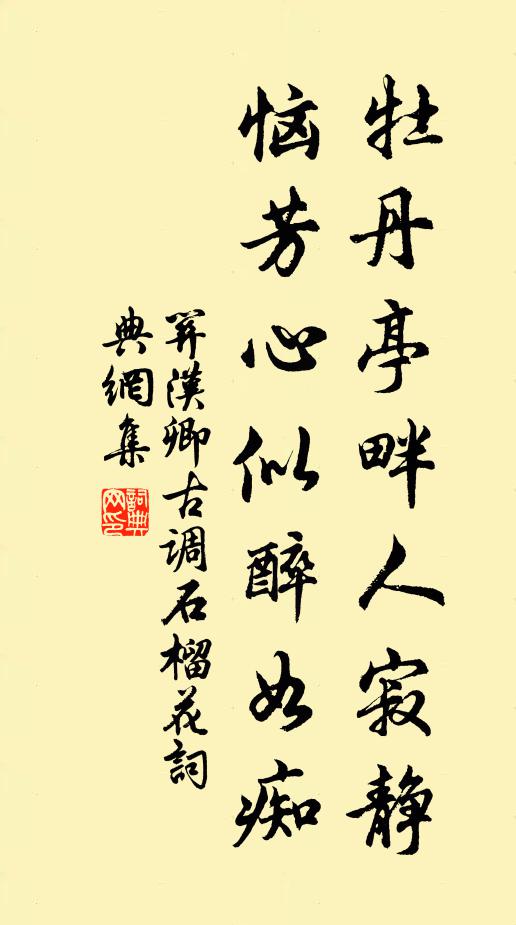 牡丹亭畔人寂静
恼芳心似醉如痴
关汉卿古调石榴花词
典網集
詞典
网印